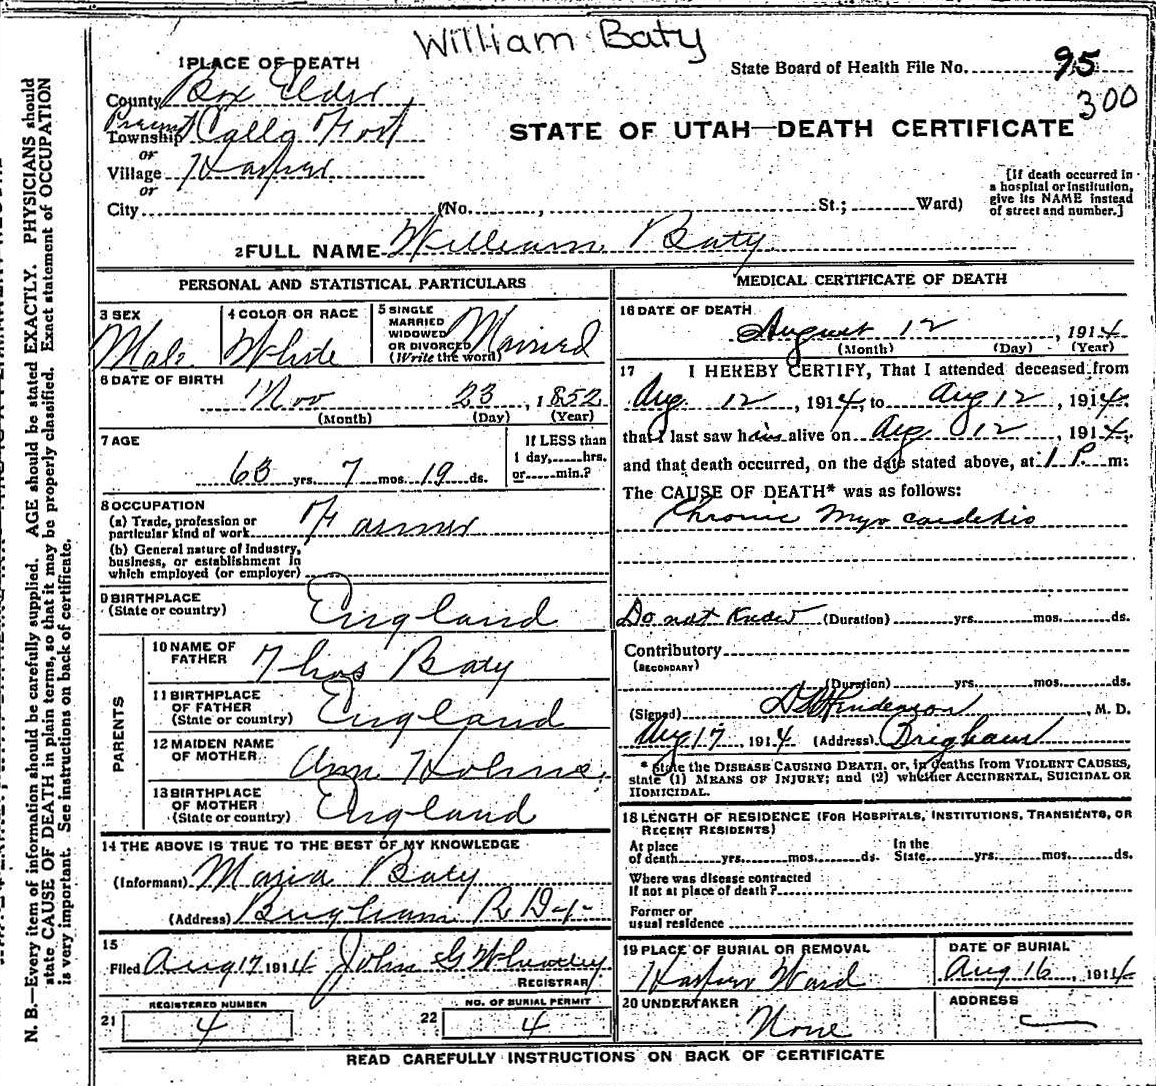 William Baty
1 PLACE OF DEATH
State Board of Health File No. 95
300
County Box Elder
Precinct
Township Calls Fort
or
Village Harper
or
City (No. , St.; Ward)
STATE OF UTAH—DEATH CERTIFICATE
[If death occurred in
a hospital or institution,
give its NAME instead
of street and number.]
2 FULL NAME William Baty
PERSONAL AND STATISTICAL PARTICULARS
3 SEX
Male
4 COLOR OR RACE
White
5 SINGLE
MARRIED
WIDOWED
OR DIVORCED
(Write the word) Married
6 DATE OF BIRTH
Nov 23, 1852
(Month) (Day) (Year)
7 AGE
63 yrs. 7 mos. 19 ds.
If LESS than
1 day,.....hrs.
or.....min.?
8 OCCUPATION
(a) Trade, profession or
particular kind of work Farmer
(b) General nature of Industry,
business, or establishment in
which employed (or employer)
9 BIRTHPLACE
(State or country) England
PARENTS
10 NAME OF
FATHER Thos Baty
11 BIRTHPLACE
OF FATHER
(State or country) England
12 MAIDEN NAME
OF MOTHER Ann Holms
13 BIRTHPLACE
OF MOTHER
(State or country) England
14 THE ABOVE IS TRUE TO THE BEST OF MY KNOWLEDGE
(Informant) Maria Baty
(Address) Brigham R D
15
Filed Aug 17 1914 John G Wheatley
REGISTRAR
REGISTERED NUMBER
21 4
NO. OF BURIAL PERMIT
22 4
MEDICAL CERTIFICATE OF DEATH
16 DATE OF DEATH
August 12, 1914
(Month) (Day) (Year)
17 I HEREBY CERTIFY, That I attended deceased from
Aug. 12, 1914, to Aug 12, 1914,
that I last saw him alive on Aug. 12, 1914,
and that death occurred, on the date stated above, at 1 P. m:
The CAUSE OF DEATH* was as follows:
Chronic Myo cardetis
Do not Know (Duration) yrs. mos. ds.
Contributory
(SECONDARY)
(Duration) yrs. mos. ds.
(Signed) Henderson, M. D.
Aug 17, 1914 (Address) Brigham
* State the DISEASE CAUSING DEATH, or, in deaths from VIOLENT CAUSES,
state (1) MEANS OF INJURY; and (2) whether ACCIDENTAL, SUICIDAL OR
HOMICIDAL.
18 LENGTH OF RESIDENCE (FOR HOSPITALS, INSTITUTIONS, TRANSIENTS, OR
RECENT RESIDENTS)
At place
of death yrs. mos. ds. In the
State yrs. mos. ds.
Where was disease contracted
if not at place of death?
Former or
usual residence
19 PLACE OF BURIAL OR REMOVAL
Harper Ward
DATE OF BURIAL
Aug 16, 1914
20 UNDERTAKER
None
ADDRESS
READ CAREFULLY INSTRUCTIONS ON BACK OF CERTIFICATE
N. B.—Every item of information should be carefully supplied. AGE should be stated EXACTLY. PHYSICIANS should
state CAUSE OF DEATH in plain terms, so that it may be properly classified. Exact statement of OCCUPATION
is very important. See instructions on back of certificate.